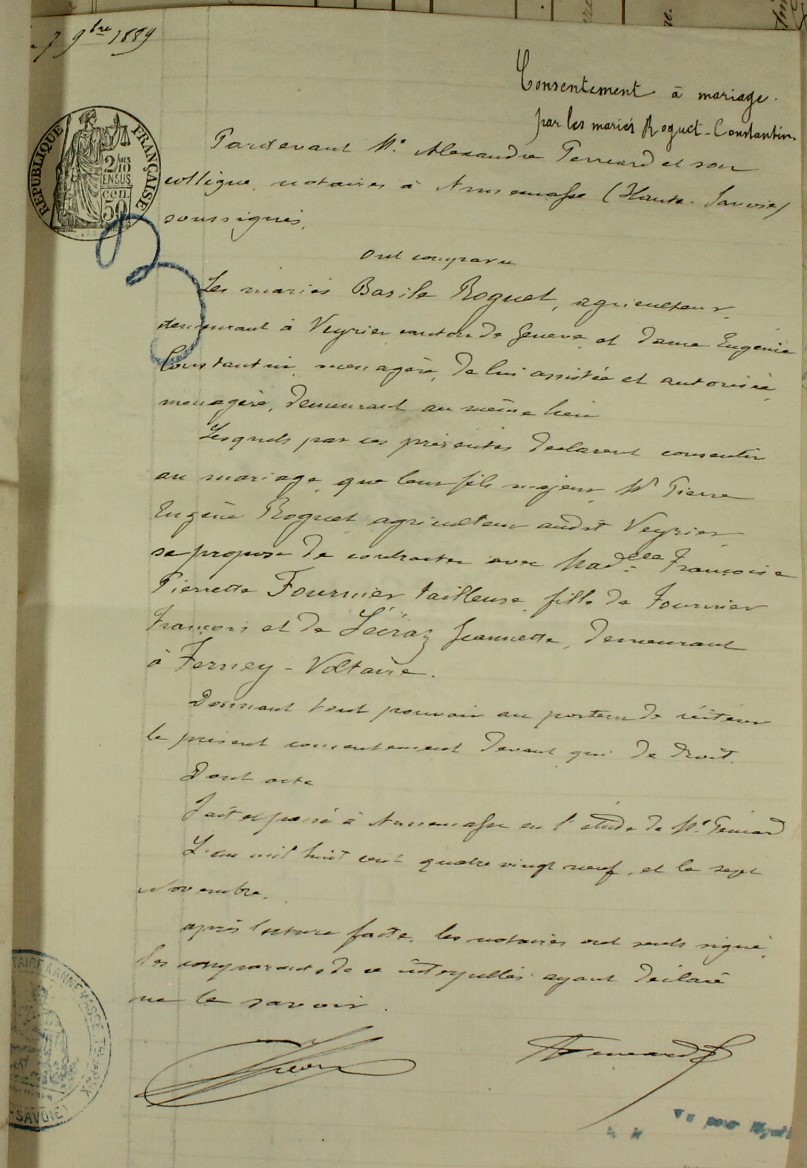 7 9bre 1889
Consentement à mariage.
par les mariés Roguet-Constantin.
RÉPUBLIQUE FRANÇAISE
2/10 EN SUS
50 cen
Pardevant Me Alexandre et son
collègue, notaires à Annemasse (Haute-Savoie)
soussignés,
Ont comparu
Les mariés Basile Roguet, agriculteur,
demeurant à Veyrier canton de Genève, et dame Eugénie
Constantin, menagère, de lui assistée et autorisée,
menagère, demeurant au même lieu
Lesquels par ces présentes déclarent consentir
au mariage, que leur fils majeur, Mr Pierre
Eugène Roguet, agriculteur audit Veyrier
se propose de contracter avec Madelle Françoise
Pierrette Fournier tailleuse, fille de Fournier
François et de Jeannette, demeurant
à Ferney-Voltaire.
Donnant tout pouvoir au porteur de réitérer
le présent consentement devant qui de droit.
Dont acte
Fait et passé à Annemasse en l'étude de Me
L'an mil huit cent quatre vingt neuf, et le sept
Novembre.
après lecture faite, les notaires ont seuls signé,
les comparants de ce interpellés ayant déclaré
ne le savoir.
NOTAIRE A ANNEMASSE
SAVOIE
Vu pour